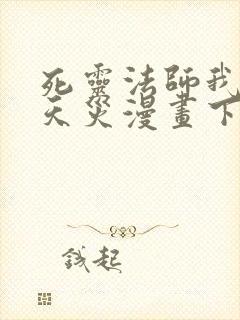 死靈法師我
天災漫畫下
錢起